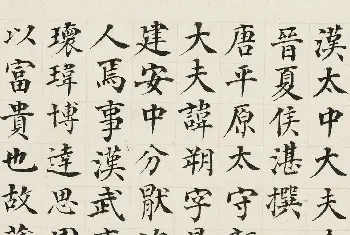 漢太中大夫
晉夏侯湛撰
唐平原太守
大夫諱朔字
建安中分猒
人焉事漢武
瓌瑋博達思
以富貴也故